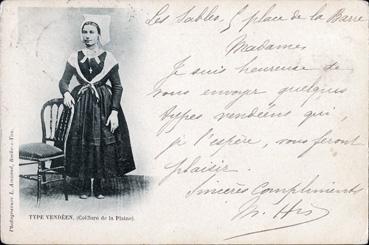 Les Sables, 5 place de la Barre
Madame
Je suis heureuse de
vous envoyer quelques
types vendéens qui,
je l'espère, vous feront
plaisir.
Sincères Compliments
TYPE VENDÉEN, (Coiffure de la Plaine).
Photogravure L. Amiaud, Roche-s-Yon.